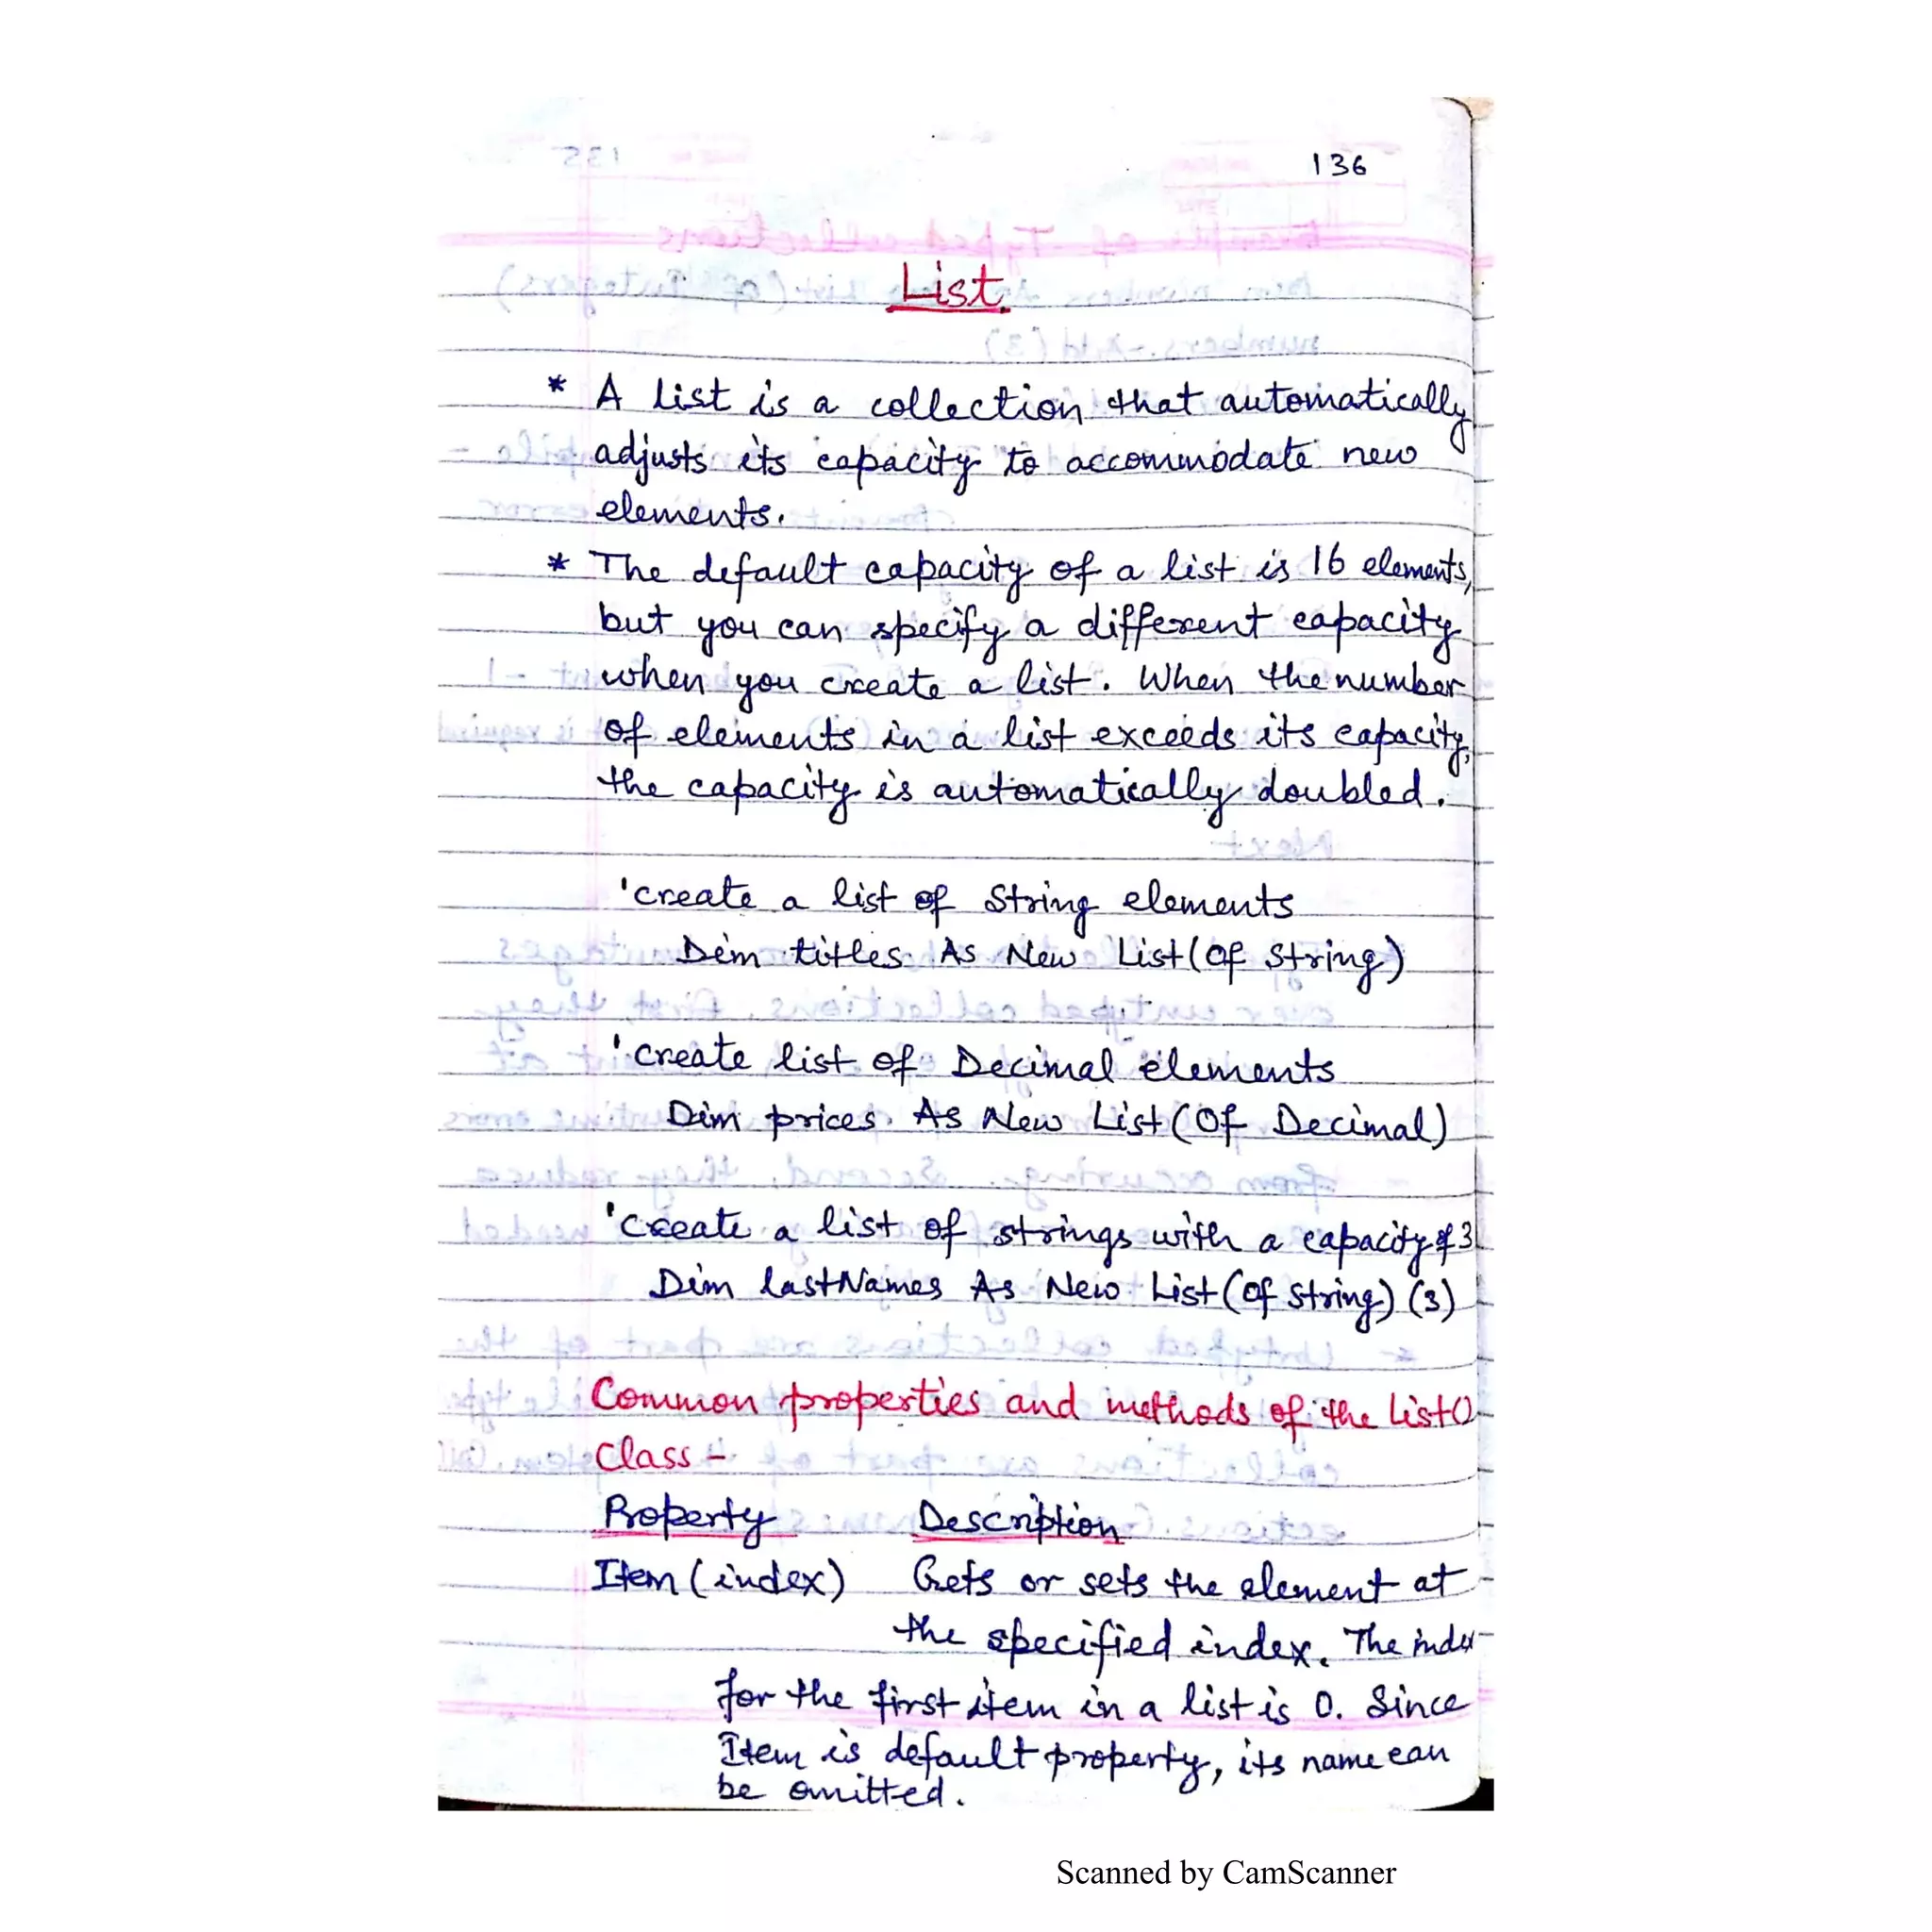 136
List
* A list is a collection that automatically
adjusts its capacity to accommodate new
elements.
* The default capacity of a list is 16 elements,
but you can specify a different capacity
when you create a list. When the number
of elements in a list exceeds its capacity,
the capacity is automatically doubled.
'create a list of String elements
Dim titles As New List(Of String)
'create list of Decimal elements
Dim prices As New List(Of Decimal)
'create a list of strings with a capacity of 3
Dim lastNames As New List(Of String) (3)
Common properties and methods of the List()
Class -
Property Description
Item (index) Gets or sets the element at
the specified index. The index
for the first item in a list is 0. Since
Item is default property, its name can
be omitted.
Scanned by CamScanner